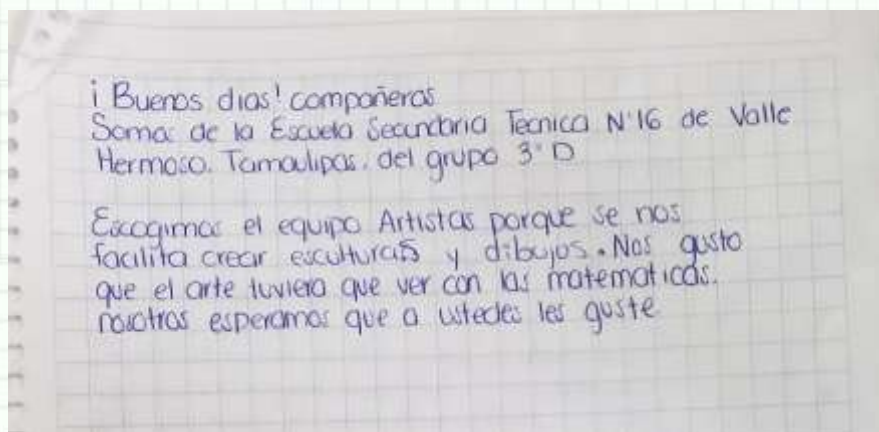 ¡Buenos dias! compañeros
Somos de la Escuela Secundaria Tecnica N°16 de Valle
Hermoso. Tamaulipas. del grupo 3°D
Escogimos el equipo Artistas porque se nos
facilita crear esculturas y dibujos. Nos gusto
que el arte tuviera que ver con las matematicas.
nosotros esperamos que a ustedes les guste